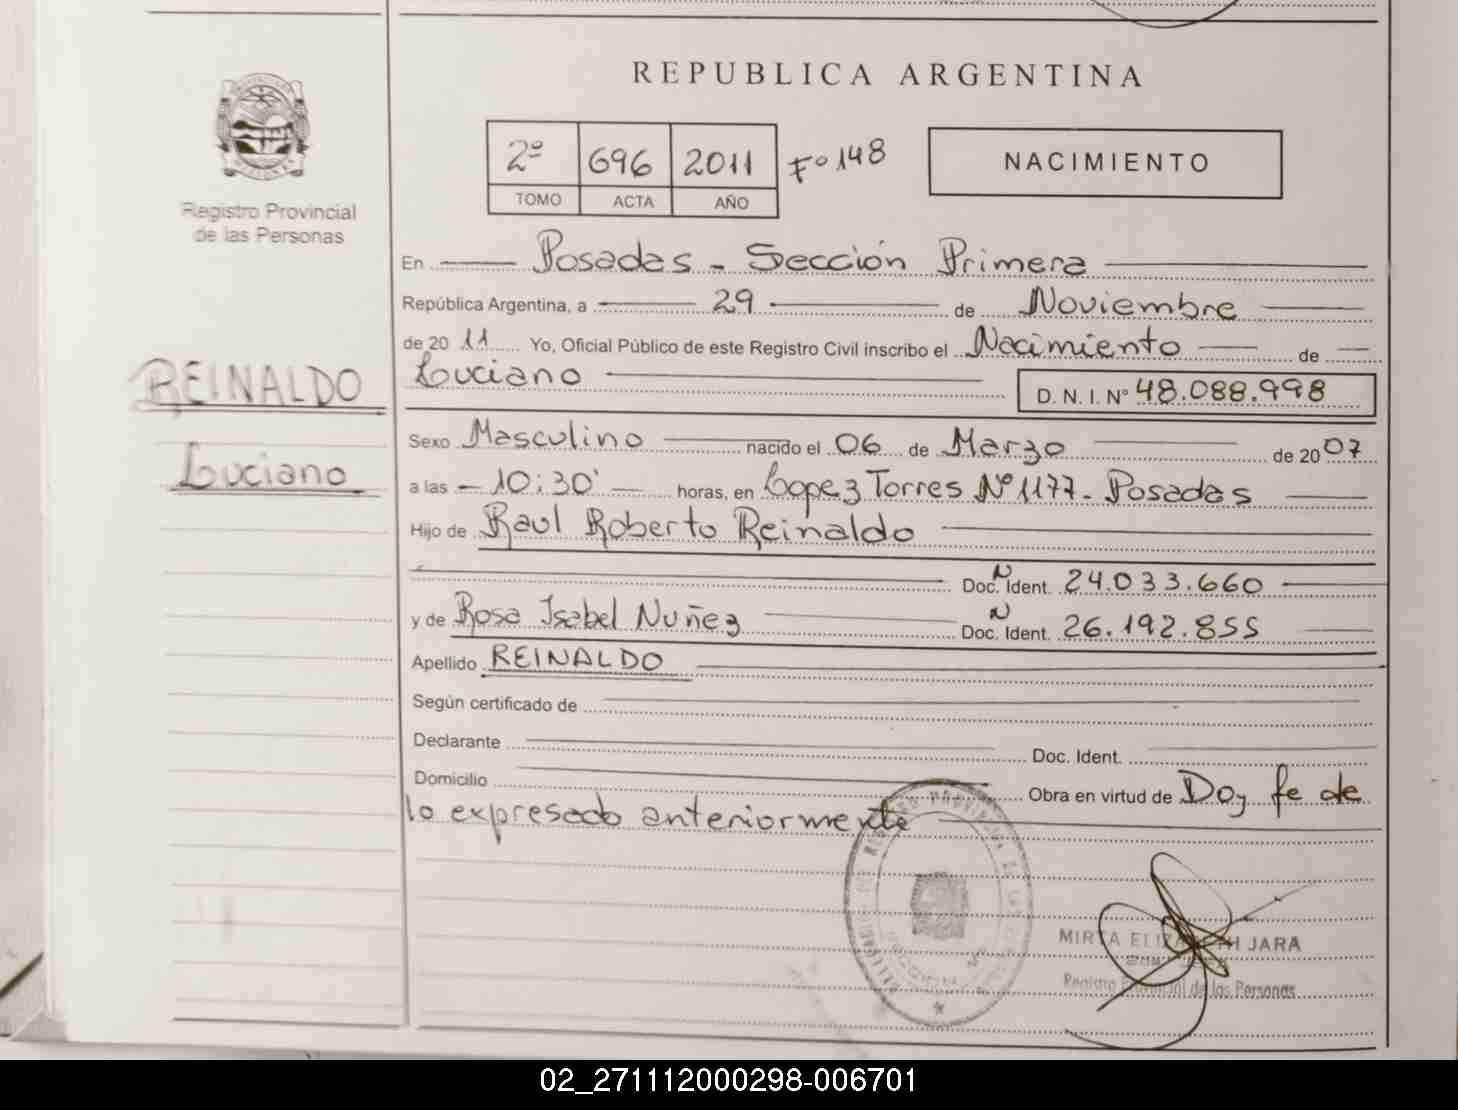 REPUBLICA ARGENTINA
2º 696 2011 Fº 148
TOMO ACTA AÑO
NACIMIENTO
Registro Provincial
de las Personas
REINALDO
Luciano
En Posadas - Sección Primera
República Argentina, a 29 de Noviembre
de 20 11 Yo, Oficial Público de este Registro Civil inscribo el Nacimiento de
Luciano D. N. I. Nº 48.088.998
Sexo Masculino nacido el 06 de Marzo de 20 07
a las - 10:30' - horas, en Lopez Torres Nº 1177 - Posadas
Hijo de Raul Roberto Reinaldo
Doc. Ident. N 24.033.660
y de Rosa Isabel Nuñez Doc. Ident. N 26.192.855
Apellido REINALDO
Según certificado de
Declarante Doc. Ident.
Domicilio Obra en virtud de Doy fe de
lo expresado anteriormente
MIRTA JARA
Registro Provincial de las Personas
02_271112000298-006701